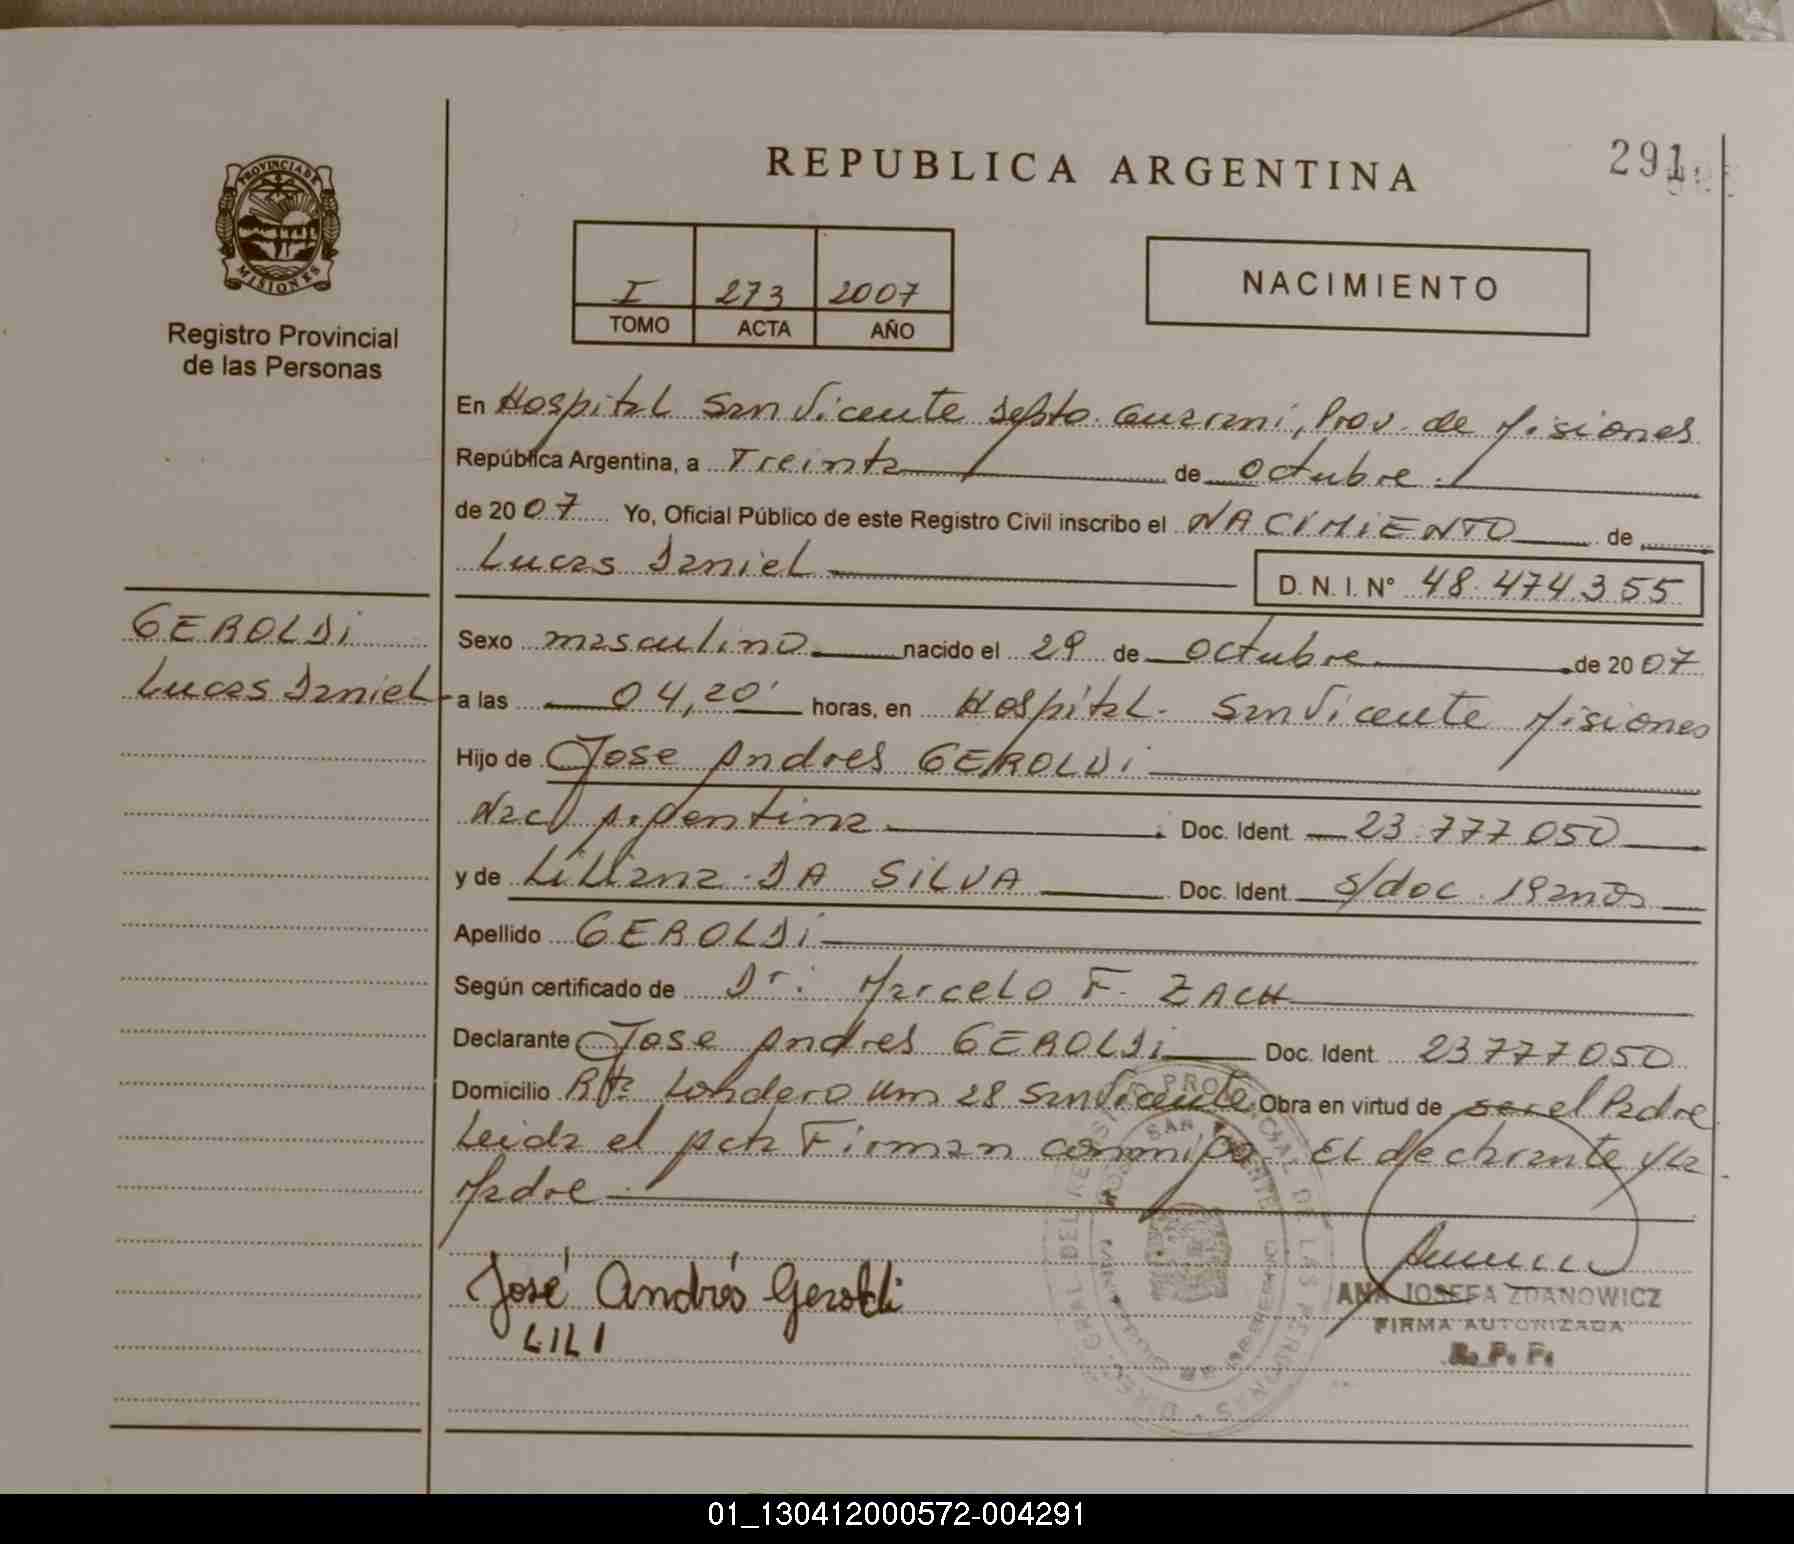 REPUBLICA ARGENTINA
291
PROVINCIA DE MISIONES
Registro Provincial
de las Personas
I 273 2007
TOMO ACTA AÑO
NACIMIENTO
En Hospital San Vicente Depto. Guarani, Prov. de Misiones
República Argentina, a Treinta de octubre
de 2007 Yo, Oficial Público de este Registro Civil inscribo el NACIMIENTO de
Lucas Daniel D. N. I. N° 48.474.355
GEROLDi
Lucas Daniel
Sexo masculino nacido el 29 de octubre de 2007
a las 04,20' horas, en Hospital San Vicente Misiones
Hijo de Jose Andres GEROLDi
Nac Argentina Doc. Ident. 23.777.050
y de Liliana DA SiLVA Doc. Ident. s/doc. 19 años
Apellido GEROLDi
Según certificado de Dr. Marcelo F. ZACH
Declarante Jose Andres GEROLDi Doc. Ident. 23777050
Domicilio Londero Km 28 San Vicente Obra en virtud de ser el Padre
Leida el acta Firman conmigo El declarante y la
Madre
José Andrés Geroldi
LILI
ANA JOSEFA ZDANOWICZ
FIRMA AUTORIZADA
R. P. P.
DIREC. GRAL DEL REGISTRO PROVINCIAL DE LAS PERSONAS
SAN VICENTE
01_130412000572-004291